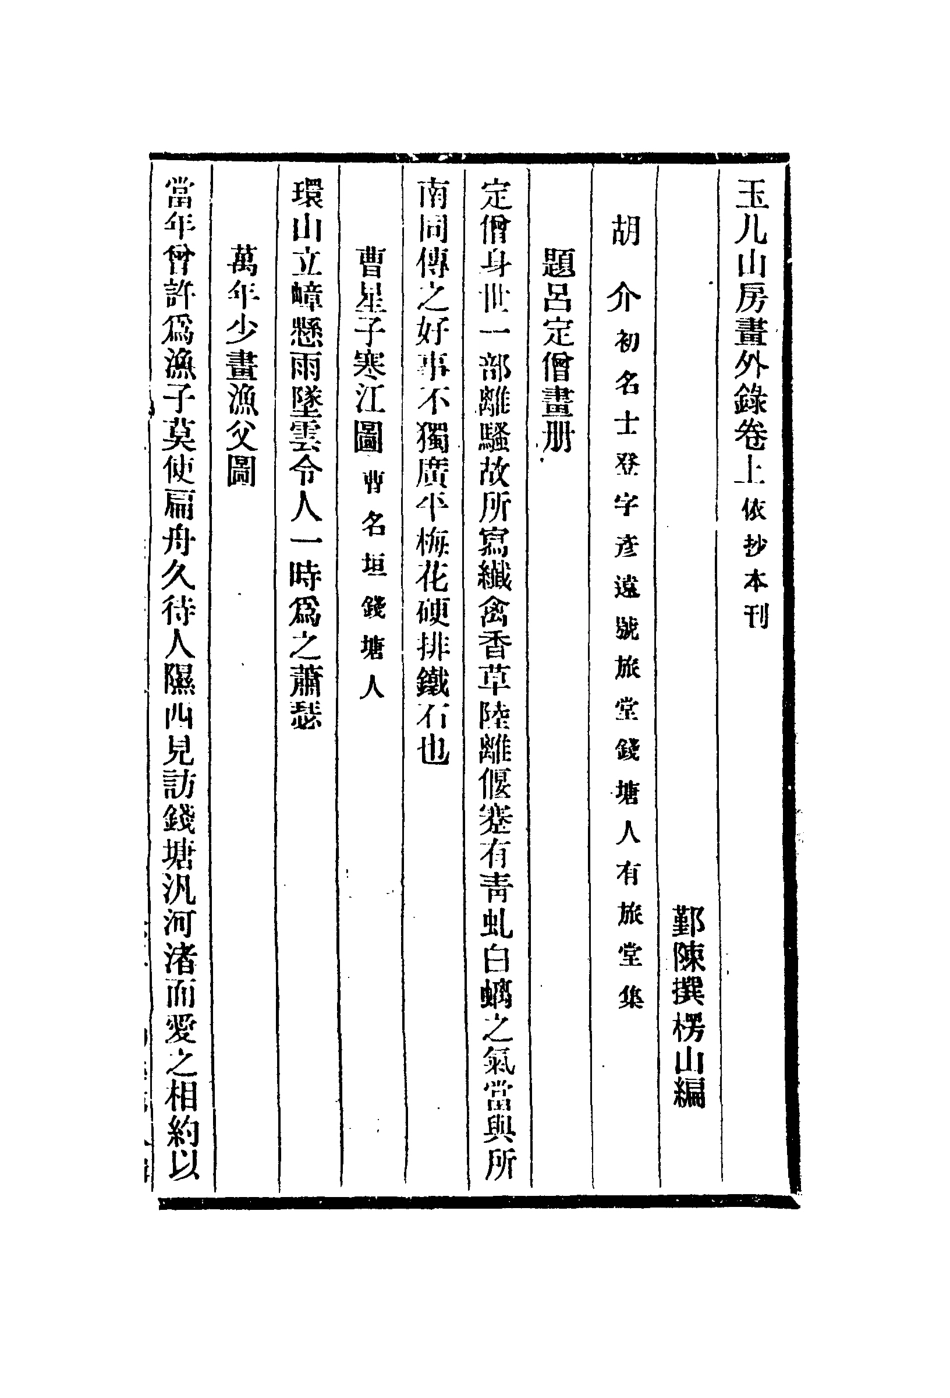 玉几山房畫外錄卷上依抄本刊
鄞陳撰楞山編
胡介初名士登字彥遠號旅堂錢塘人有旅堂集
題呂定僧畫册
定僧身世一部離騷故所寫纖禽香草陸離偃蹇有靑虬白螭之氣當與所
南同傳之好事不獨廣平梅花硬排鐵石也
曹星子寒江圖曹名垣錢塘人
環山立嶂懸雨墜雲令人一時爲之蕭瑟
萬年少畫漁父圖
當年曾許爲漁子莫使扁舟久待人隰西見訪錢塘汎河渚而愛之相約以